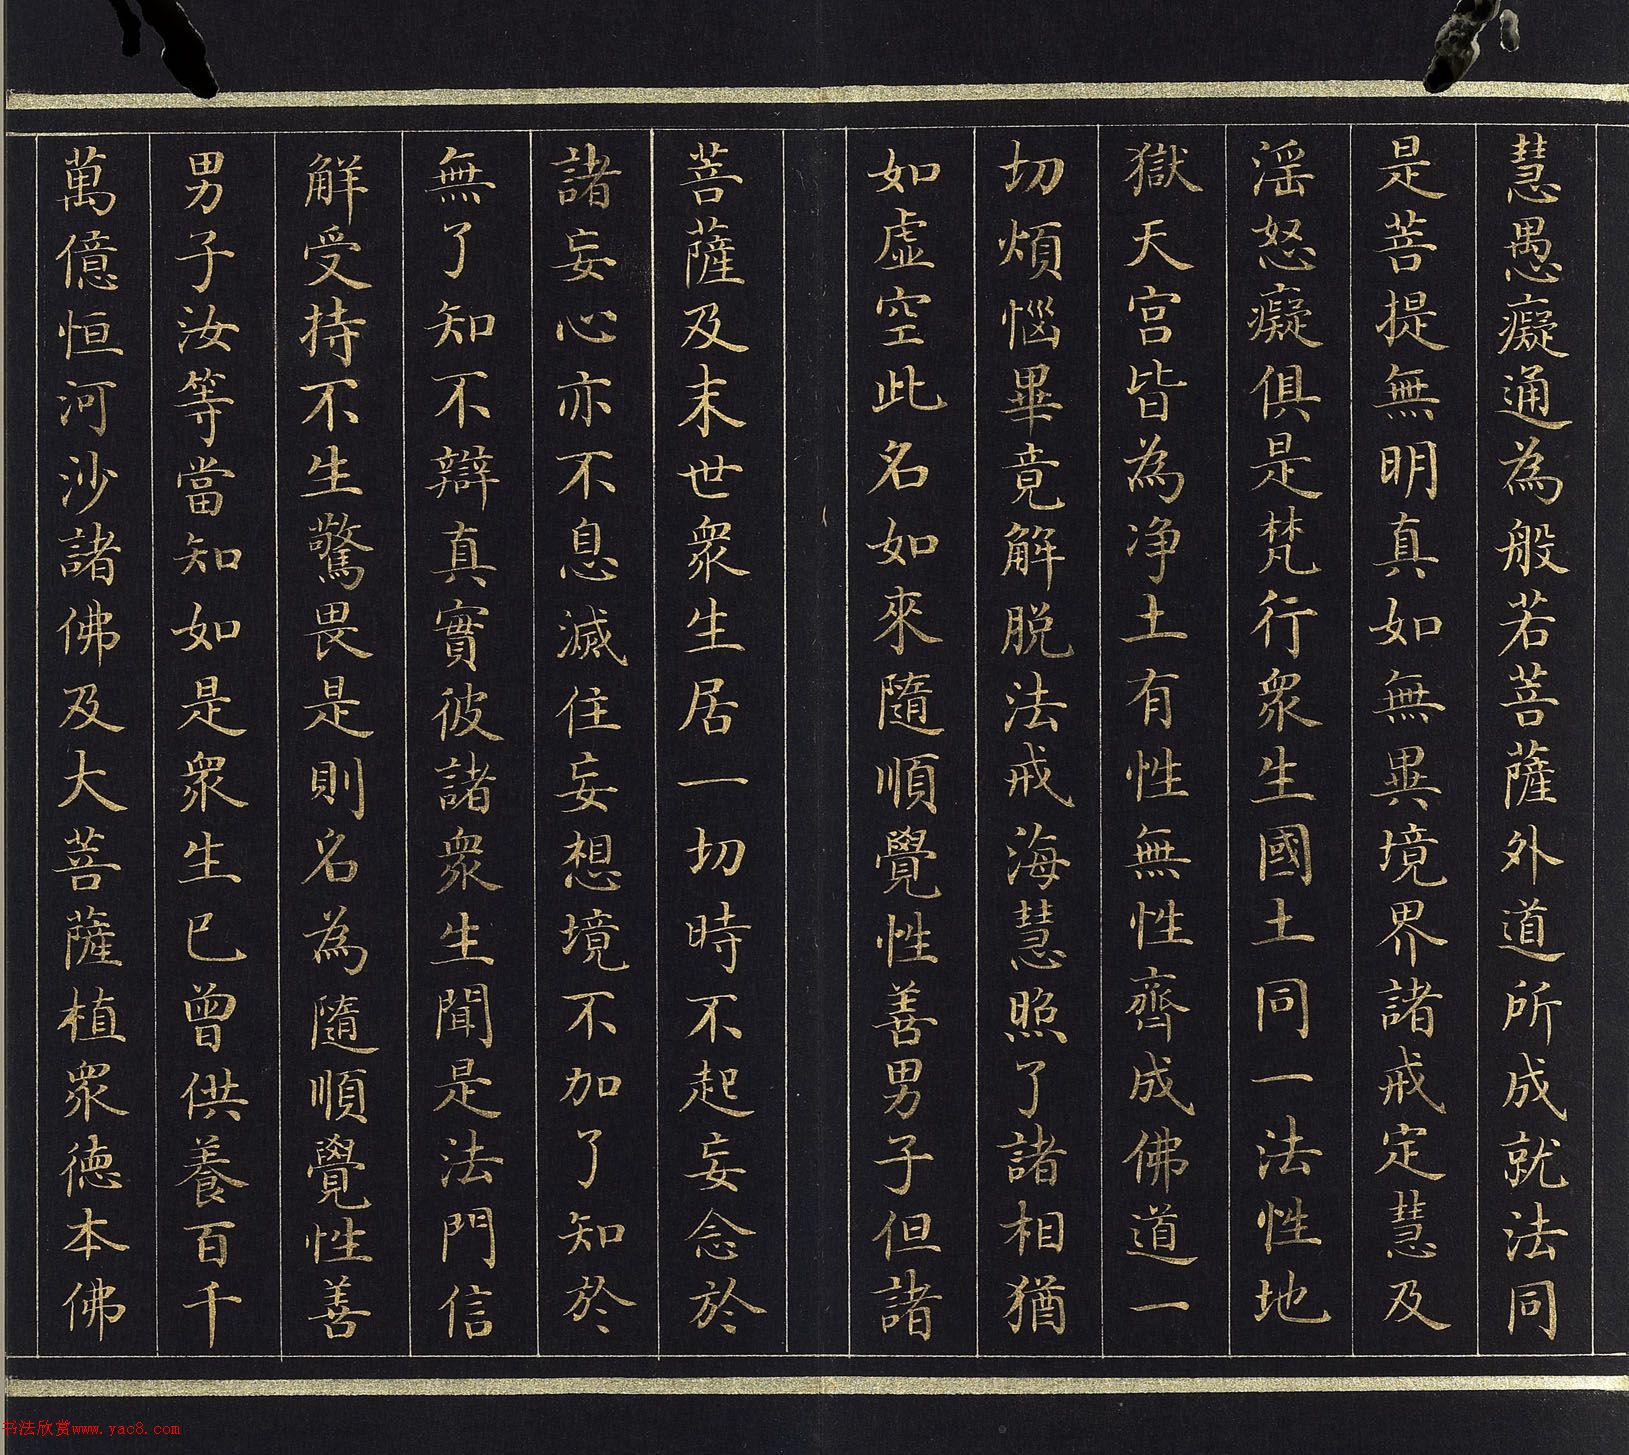 慧愚癡通為般若菩薩外道所成就法同
是菩提無明真如無異境界諸戒定慧及
滛怒癡俱是梵行衆生國土同一法性地
獄天宮皆為净土有性無性齊成佛道一
切煩惱畢竟解脱法戒海慧照了諸相猶
如虛空此名如來隨順覺性善男子但諸
菩薩及末世衆生居一切時不起妄念於
諸妄心亦不息滅住妄想境不加了知於
無了知不辯真實彼諸衆生聞是法門信
解受持不生驚畏是則名為隨順覺性善
男子汝等當知如是衆生已曾供養百千
萬億恒河沙諸佛及大菩薩植衆德本佛
书法欣赏www.yac8.com